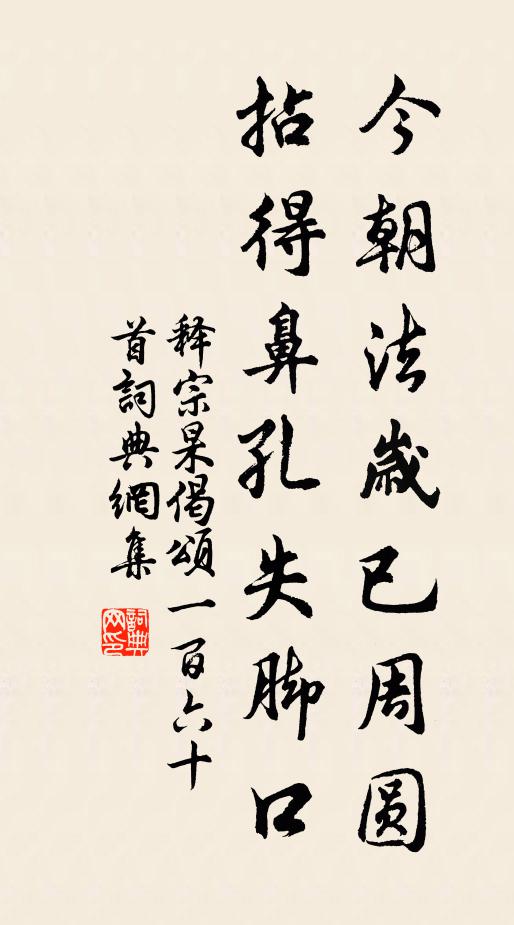 今朝法歲已周圆
拈得鼻孔失脚口
释宗杲偈頌一百六十
首詞典網集
詞典网印